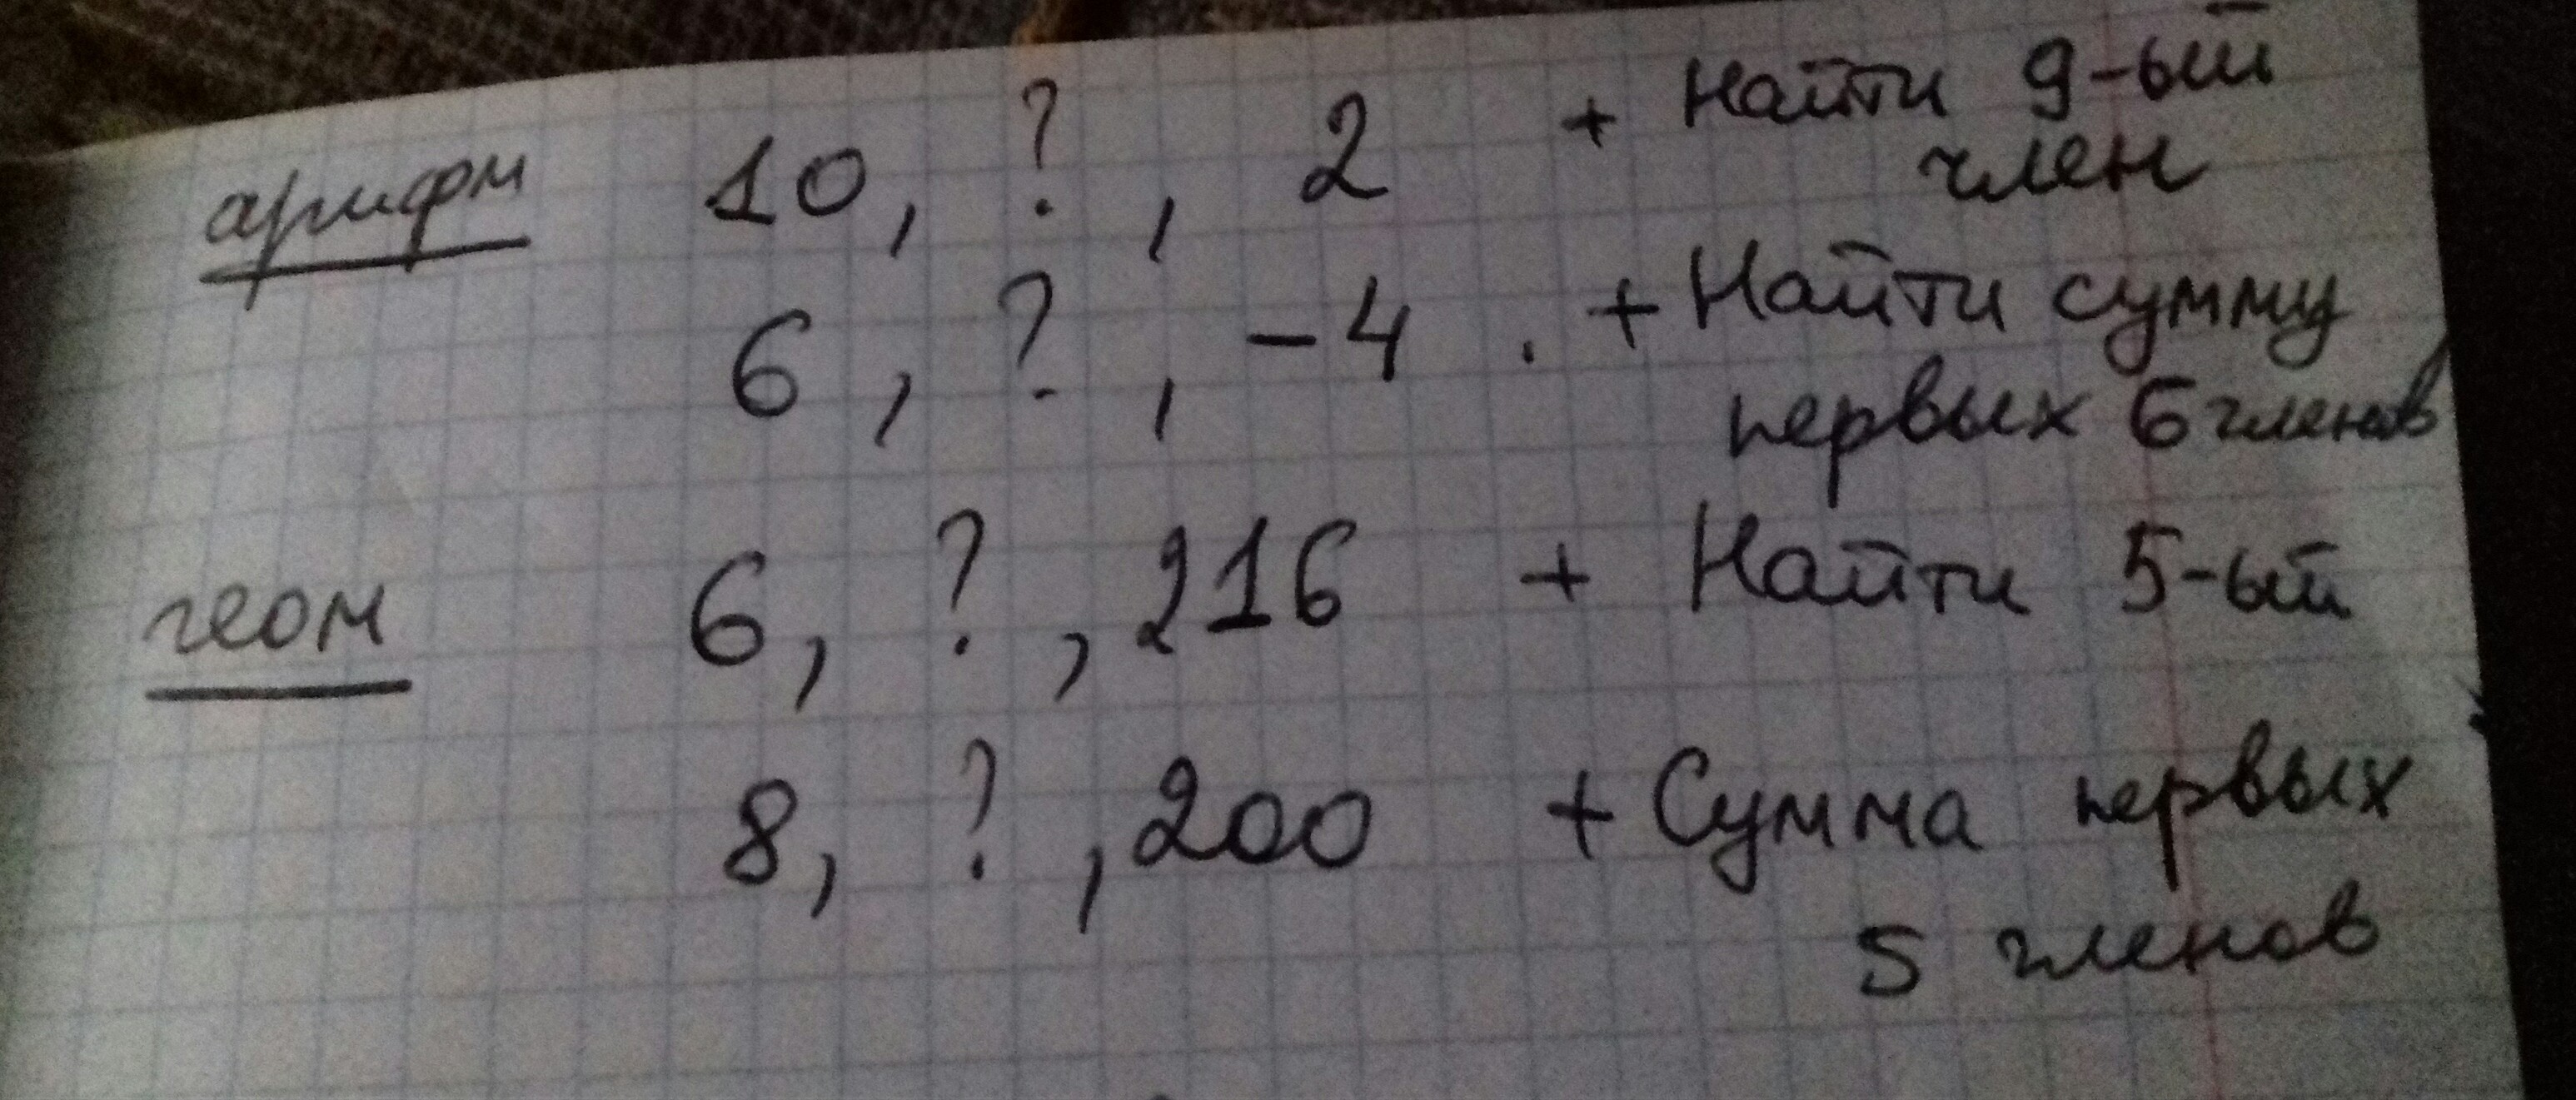 арифм 10, ?, 2 + Найти 9-ый
член
6, ?, -4. + Найти сумму
первых 6 членов
геом 6, ?, 216 + Найти 5-ый
8, ?, 200 + Сумма первых
5 членов